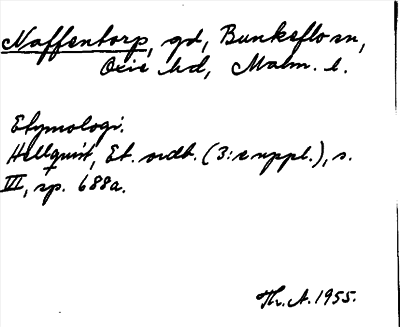 Naffentorp, gd, Bunkeflo sn,
Oxie hd, Malm. l.
Etymologi.
Hellquist, Et. ordb. (3: e uppl.), s.
III, sp. 688a.
Th. A. 1955.